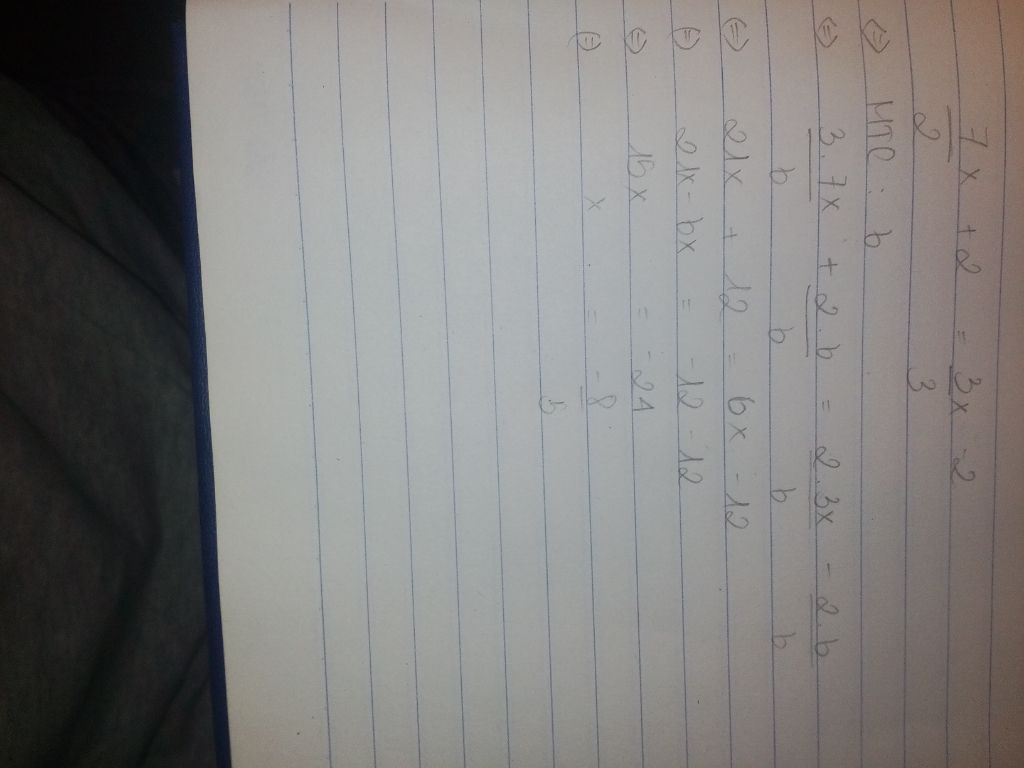 7x + 2 = 3x - 2
2 3
⇔ MTC : 6
⇔ 3.7x + 2.6 = 2.3x - 2.6
6 6 6 6
⇔ 21x + 12 = 6x - 12
⇔ 21x - 6x = -12 - 12
⇔ 15x = -24
⇔ x = -8
5